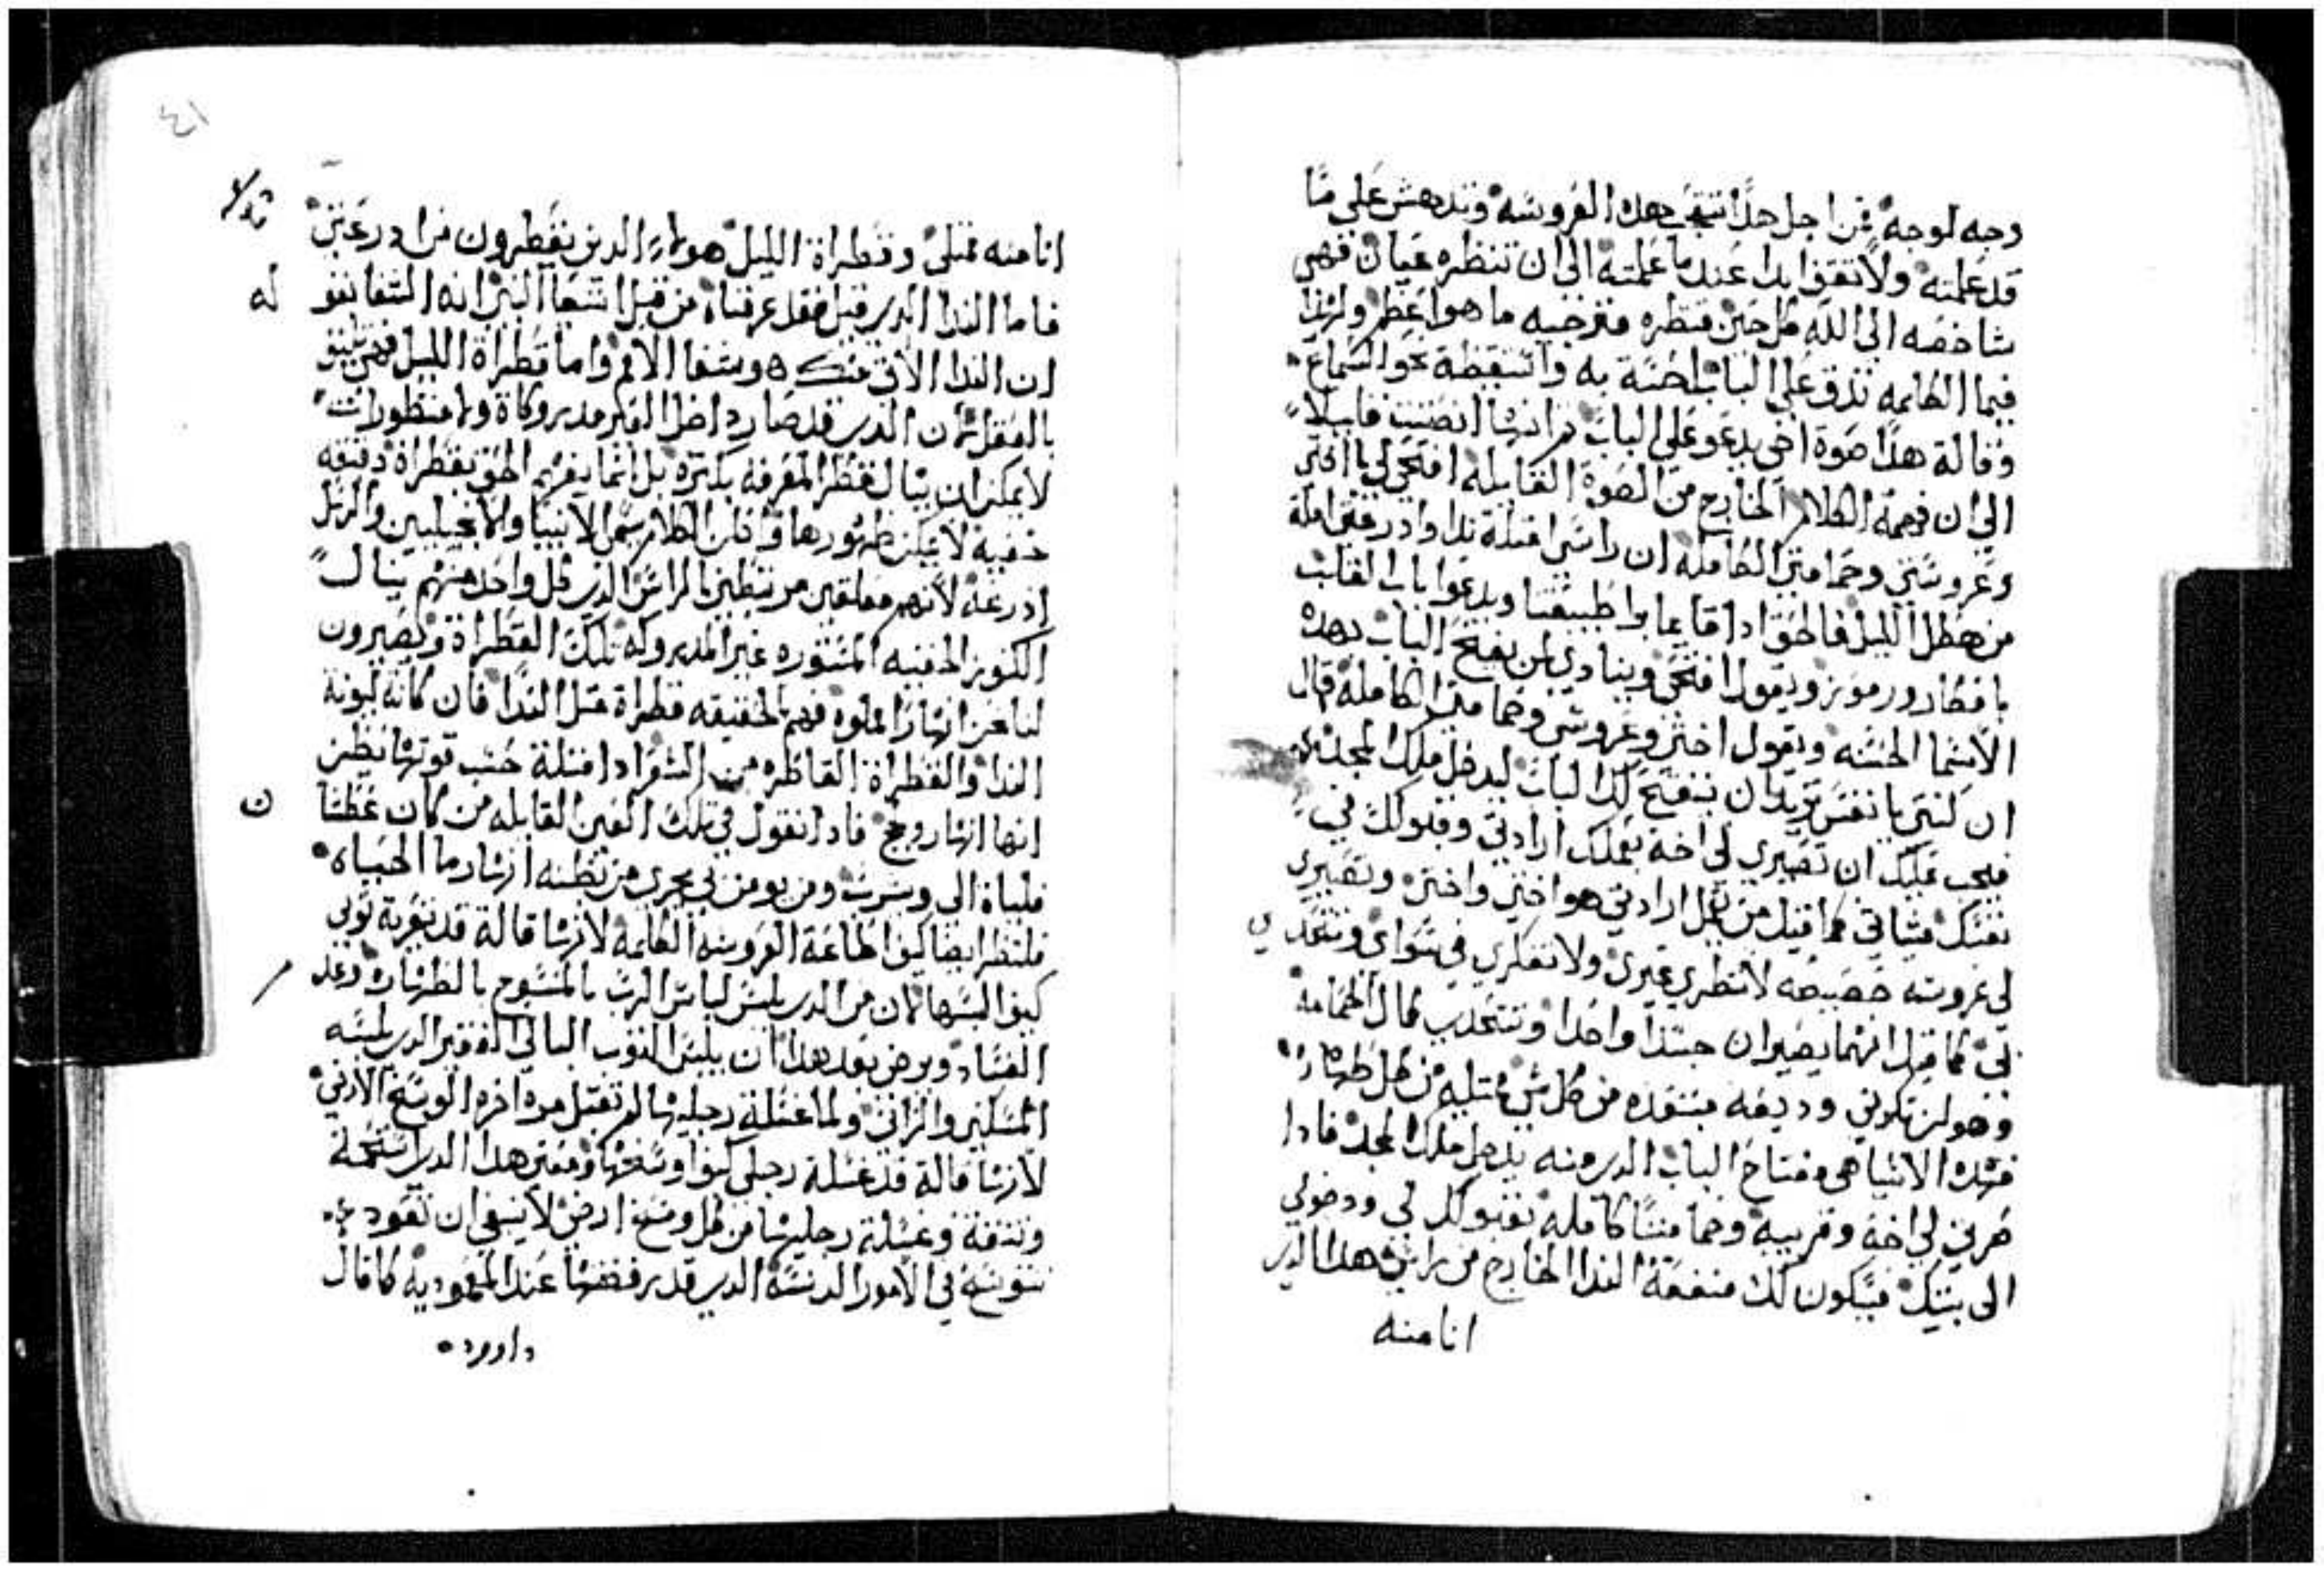 وجه لوجه فمن اجل هذا تتعجب هذه العروسه وتندهش على ما
قد علمته ولا تقف ابدا عند ما علمته الى ان تنظره عيان فهي
شاخصه الى الله كل حين فتظره فترجيه ما هو اعظم ولهذا
فيما الكلمه تدق على الباب احسة به واستيقظة نحو السماع
وقالة هذا صوة اخي يدعو على الباب ثم انها انصتت قليلا
الى ان فهمة الكلام الخارج من الصوة القايله افتحي لي يا اختي
وعروستي وحمامتي الكامله ان راسي امتلة ندا وادرعتي املة
من هطل الليل فالحق اذا قايما براطبيعتنا ويدعوا باب القلب
بافكار ورموز ويقول افتحي وينادي لمن يفتح الباب بهذه
الاسما الحسنه ويقول اختي وعروستي وحمامتي الكاملة قال
ان كنتي يا نفس تريدي ان ينفتح لك الباب ليدخل ملك المجد
فيجب عليك ان تصيري لي اخة بعملك ارادتي وقبولك في
نفسك مشاتي كما قيل من عمل ارادتي هو اخي واختي وتصيري
لي عروسه خصيصه لا تنظري غيري ولا تفكري في سواي وتتحدي
بي كما قيل انهما يصيران جسدا واحدا وتتخذي كمال الحمامة
وهو ان تكوني وديعه مبتعده من كل شي ممتليه من كل طهاره
فهذه الاشيا هي مفتاح الباب الذي منه يدخل ملك المجد فاذا
صرتي لي اخة وقريبه وحمامتنا كامله بقبولك لي ودخولي
الى بيتك فيكون لك منفعة الندا الخارج من راسي هذا الذي
انا منه
٤١
انا منه ممتلي وقطراة الليل هولاء الذين يقطرون من ادرعتي
فاما الندا الذي قيل فقد عرفناه من قبل اشعيا النبي انه الشفا بقوله
ان الندا الاتي منك هو شفا الامم واما قطراة الليل فهي تليق
بالعقل لان الذي قد صار داخل الغير مدروكاة ولا منظوراة
لا يمكن ان ينال قطر المعرفة بكثره بل انما يفهم الحق بقطراة دقيقه
خفيه لا يمكن ظهورها وانكن الكلام سمى الانبيا والانجيليين والرسل
ادرعه لانهم معلقين مرتبطين بالراس الذي كل واحد منهم ينال
الكنوز الخفيه المستوره غير المدروكه تلك القطراة ويصيرون
لنا نحن انهارا مملوه فهم الحقيقه قطراة مثل الندا فان كانة ليونة
الندا والقطراة القاطره من الشعر اذا امتلة حسب قوتها يظن
انها انهار ولجج فاذا نقول في تلك العين القايله من كان عطشان
فلياة الى ويشرب ومن يومن بي يجري من بطنه انهار ما الحياه
فلننظر ايضا كيف اطاعة العروسه الكلمة لانها قالة قد تعرية ثوبي
كيف البسها لان من الذي يلبس لباس الرب المنسوج بالطهارة وعدم
الفساد ويرضى بعد هذا ان يلبس الثوب البالي الفقير الذي يلبسه
المسكين والزاني ولما غسلة رجليها لم تقبل مره اخره الوسخ الارضي
لانها قالة قد غسلة رجلي كيف اوسخها ومعنى هذا الذي استحمة
وتنقة وغسلة رجليها من كل وسخ ارضي لا ينبغي ان تعود
تتوسخ في الامور الدنسة الذي قد رفضتها عند المعموديه كما قال
داوود